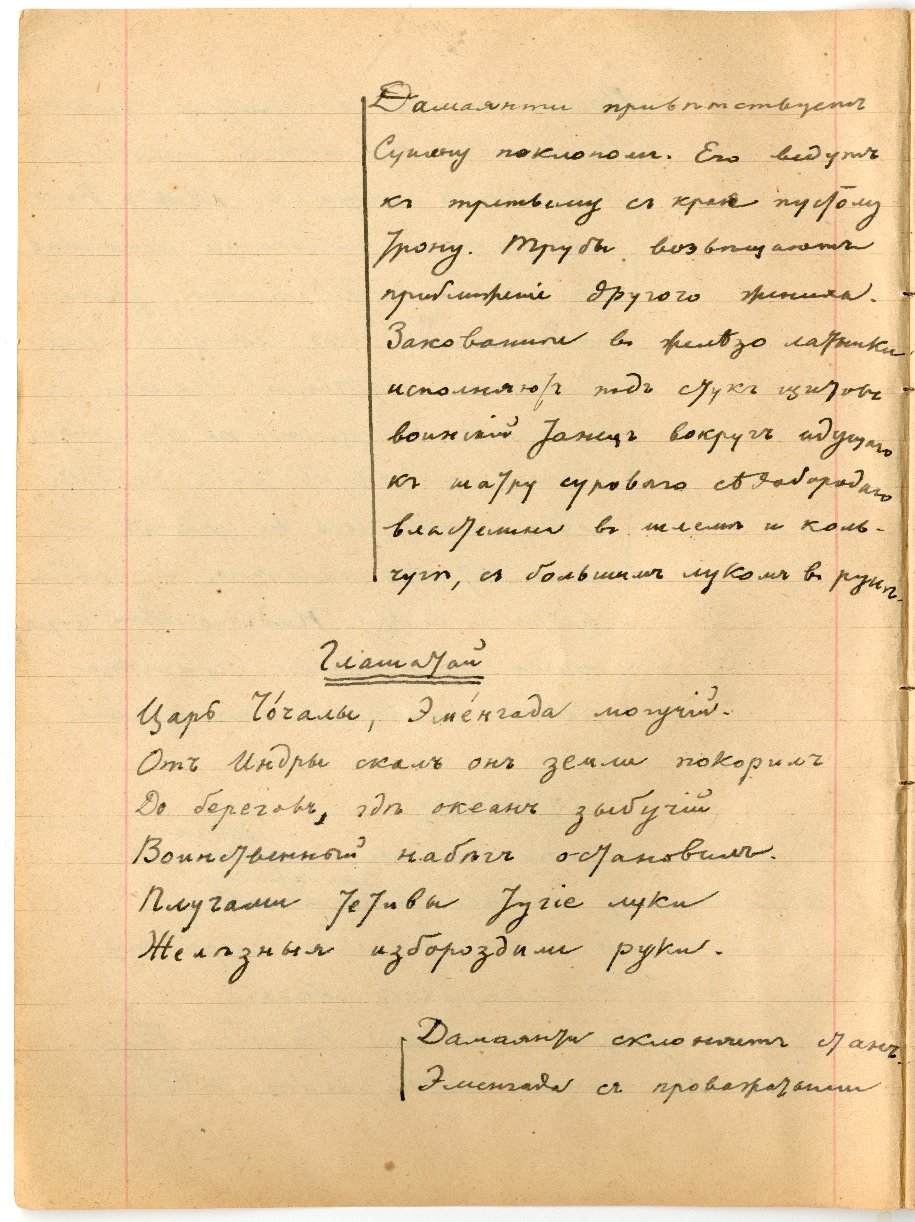 Дамаянти привѣтствуетъ
Сумену поклономъ. Его ведутъ
къ третьему съ края пустому
трону. Трубы возвѣщаютъ
приближеніе другого жениха.
Закованные въ желѣзо латники
исполняютъ подъ стукъ щитовъ
воинскій танецъ вокругъ идущаго
къ шатру суроваго сѣдобородаго
властелина въ шлемѣ и коль-
чугѣ, съ большимъ лукомъ въ рукѣ.
Глашатай
Царь Чо́чалы, Эме́нгада могучій.
Отъ Индры скалъ онъ земли покорилъ
До береговъ, гдѣ океанъ зыбучій
Воинственный набѣгъ остановилъ.
Плугами тетивы тугіе луки
Желѣзныя избороздили руки.
Дамаянти склоняетъ станъ.
Эменгада съ провожатыми